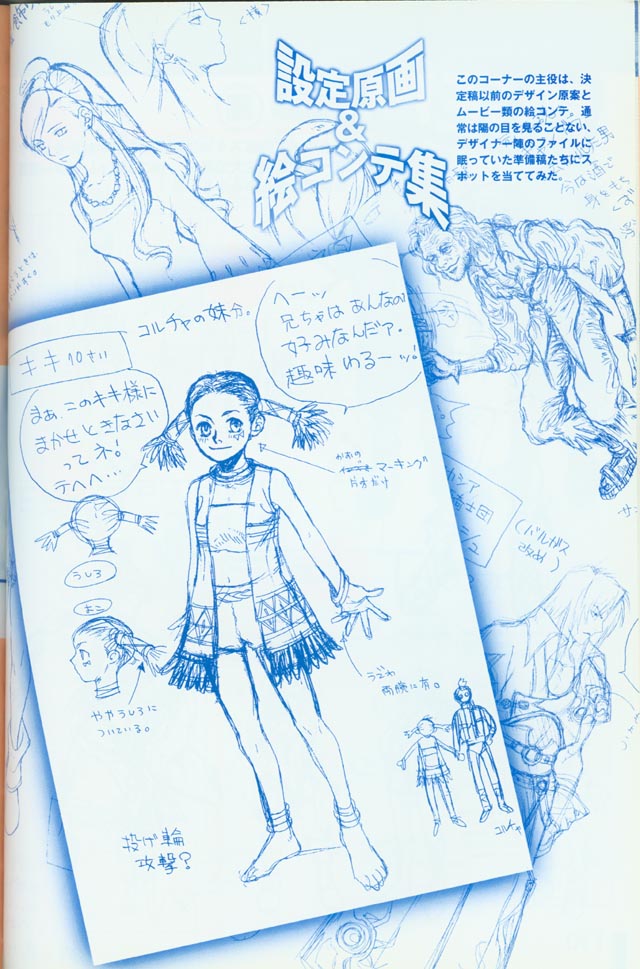 設定原画
&
絵コンテ集
このコーナーの主役は、決
定稿以前のデザイン原案と
ムービー類の絵コンテ。通
常は陽の目を見ることない、
デザイナー陣のファイルに
眠っていた準備稿たちにス
ポットを当ててみた。
コルチャの妹分。
キキ 10さい
ヘーッ
兄ちゃはあんなの
好みなんだァ。
趣味わるーッ!
まぁ、このキキ様に
まかせときなさい
ってネ!
テヘヘ…
かおの
マーキング
片方だけ
うしろ
よこ
ややうしろに
ついている。
うでわ
両腕に有。
投げ輪
攻撃?
コルチャ
男
カシア
士団
シュ
(バルガス
改め)